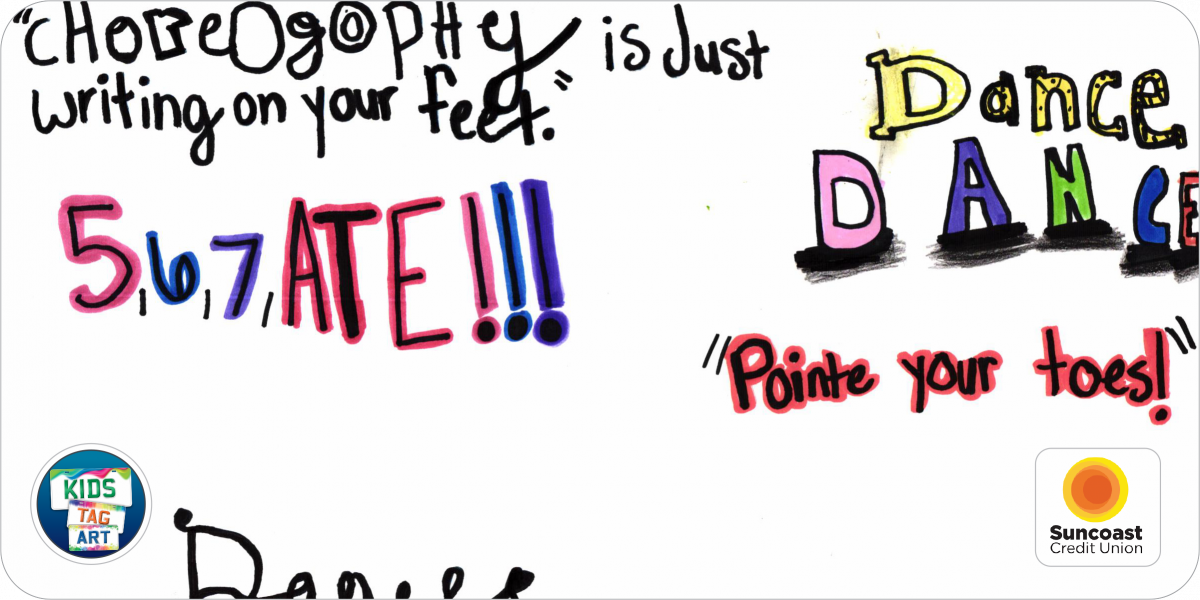 "CHOREOgOPHy is Just
writing on your feet."
Dance
DANCE
5,6,7,ATE!!!
"Pointe your toes!"
KIDS
TAG
ART
Suncoast
Credit Union
Dance